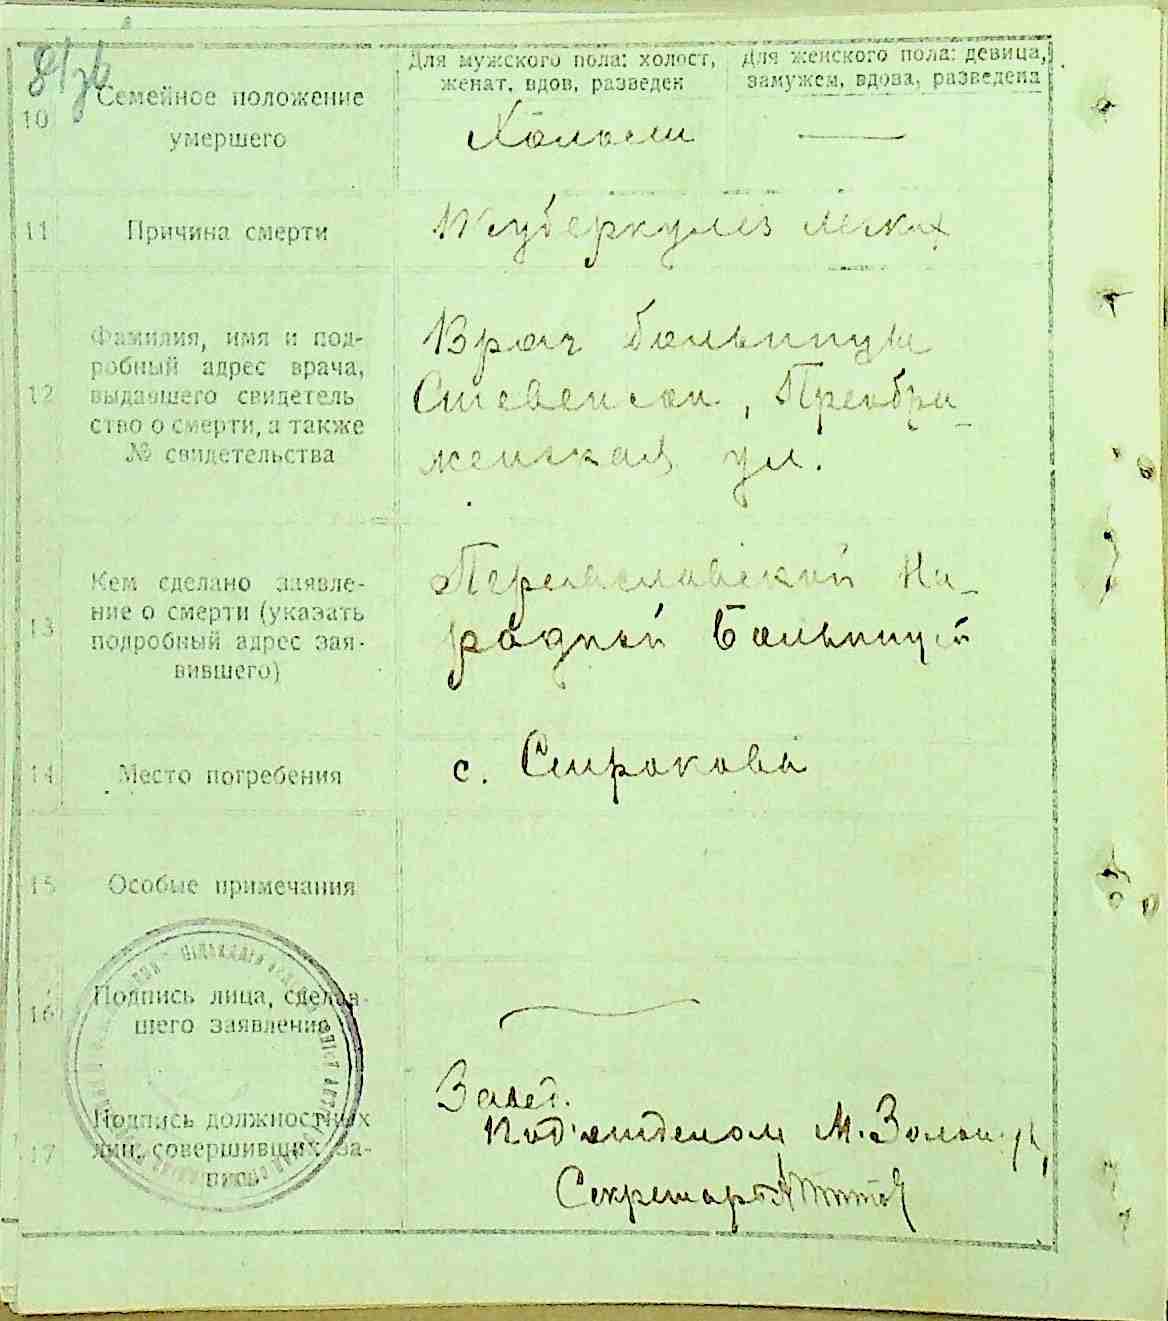 Для мужского пола: холост, женат, вдов, разведен
Для женского пола: девица, замужем, вдова, разведена
10
Семейное положение
умершего
Холост
—
11
Причина смерти
Туберкулез легких
12
Фамилия, имя и под-
робный адрес врача,
выдавшего свидетель
ство о смерти, а также
№ свидетельства
Врач больницы
Стевенсон, Преобра
женская ул.
13
Кем сделано заявле-
ние о смерти (указать
подробный адрес зая-
вившего)
Переяславской На-
родной Больницей
14
Место погребения
с.
15
Особые примечания
16
Подпись лица, сделав-
шего заявление
17
Подпись должностных
лиц, совершивших за-
пись
Завед.
Под'отделом М.
Секретарь